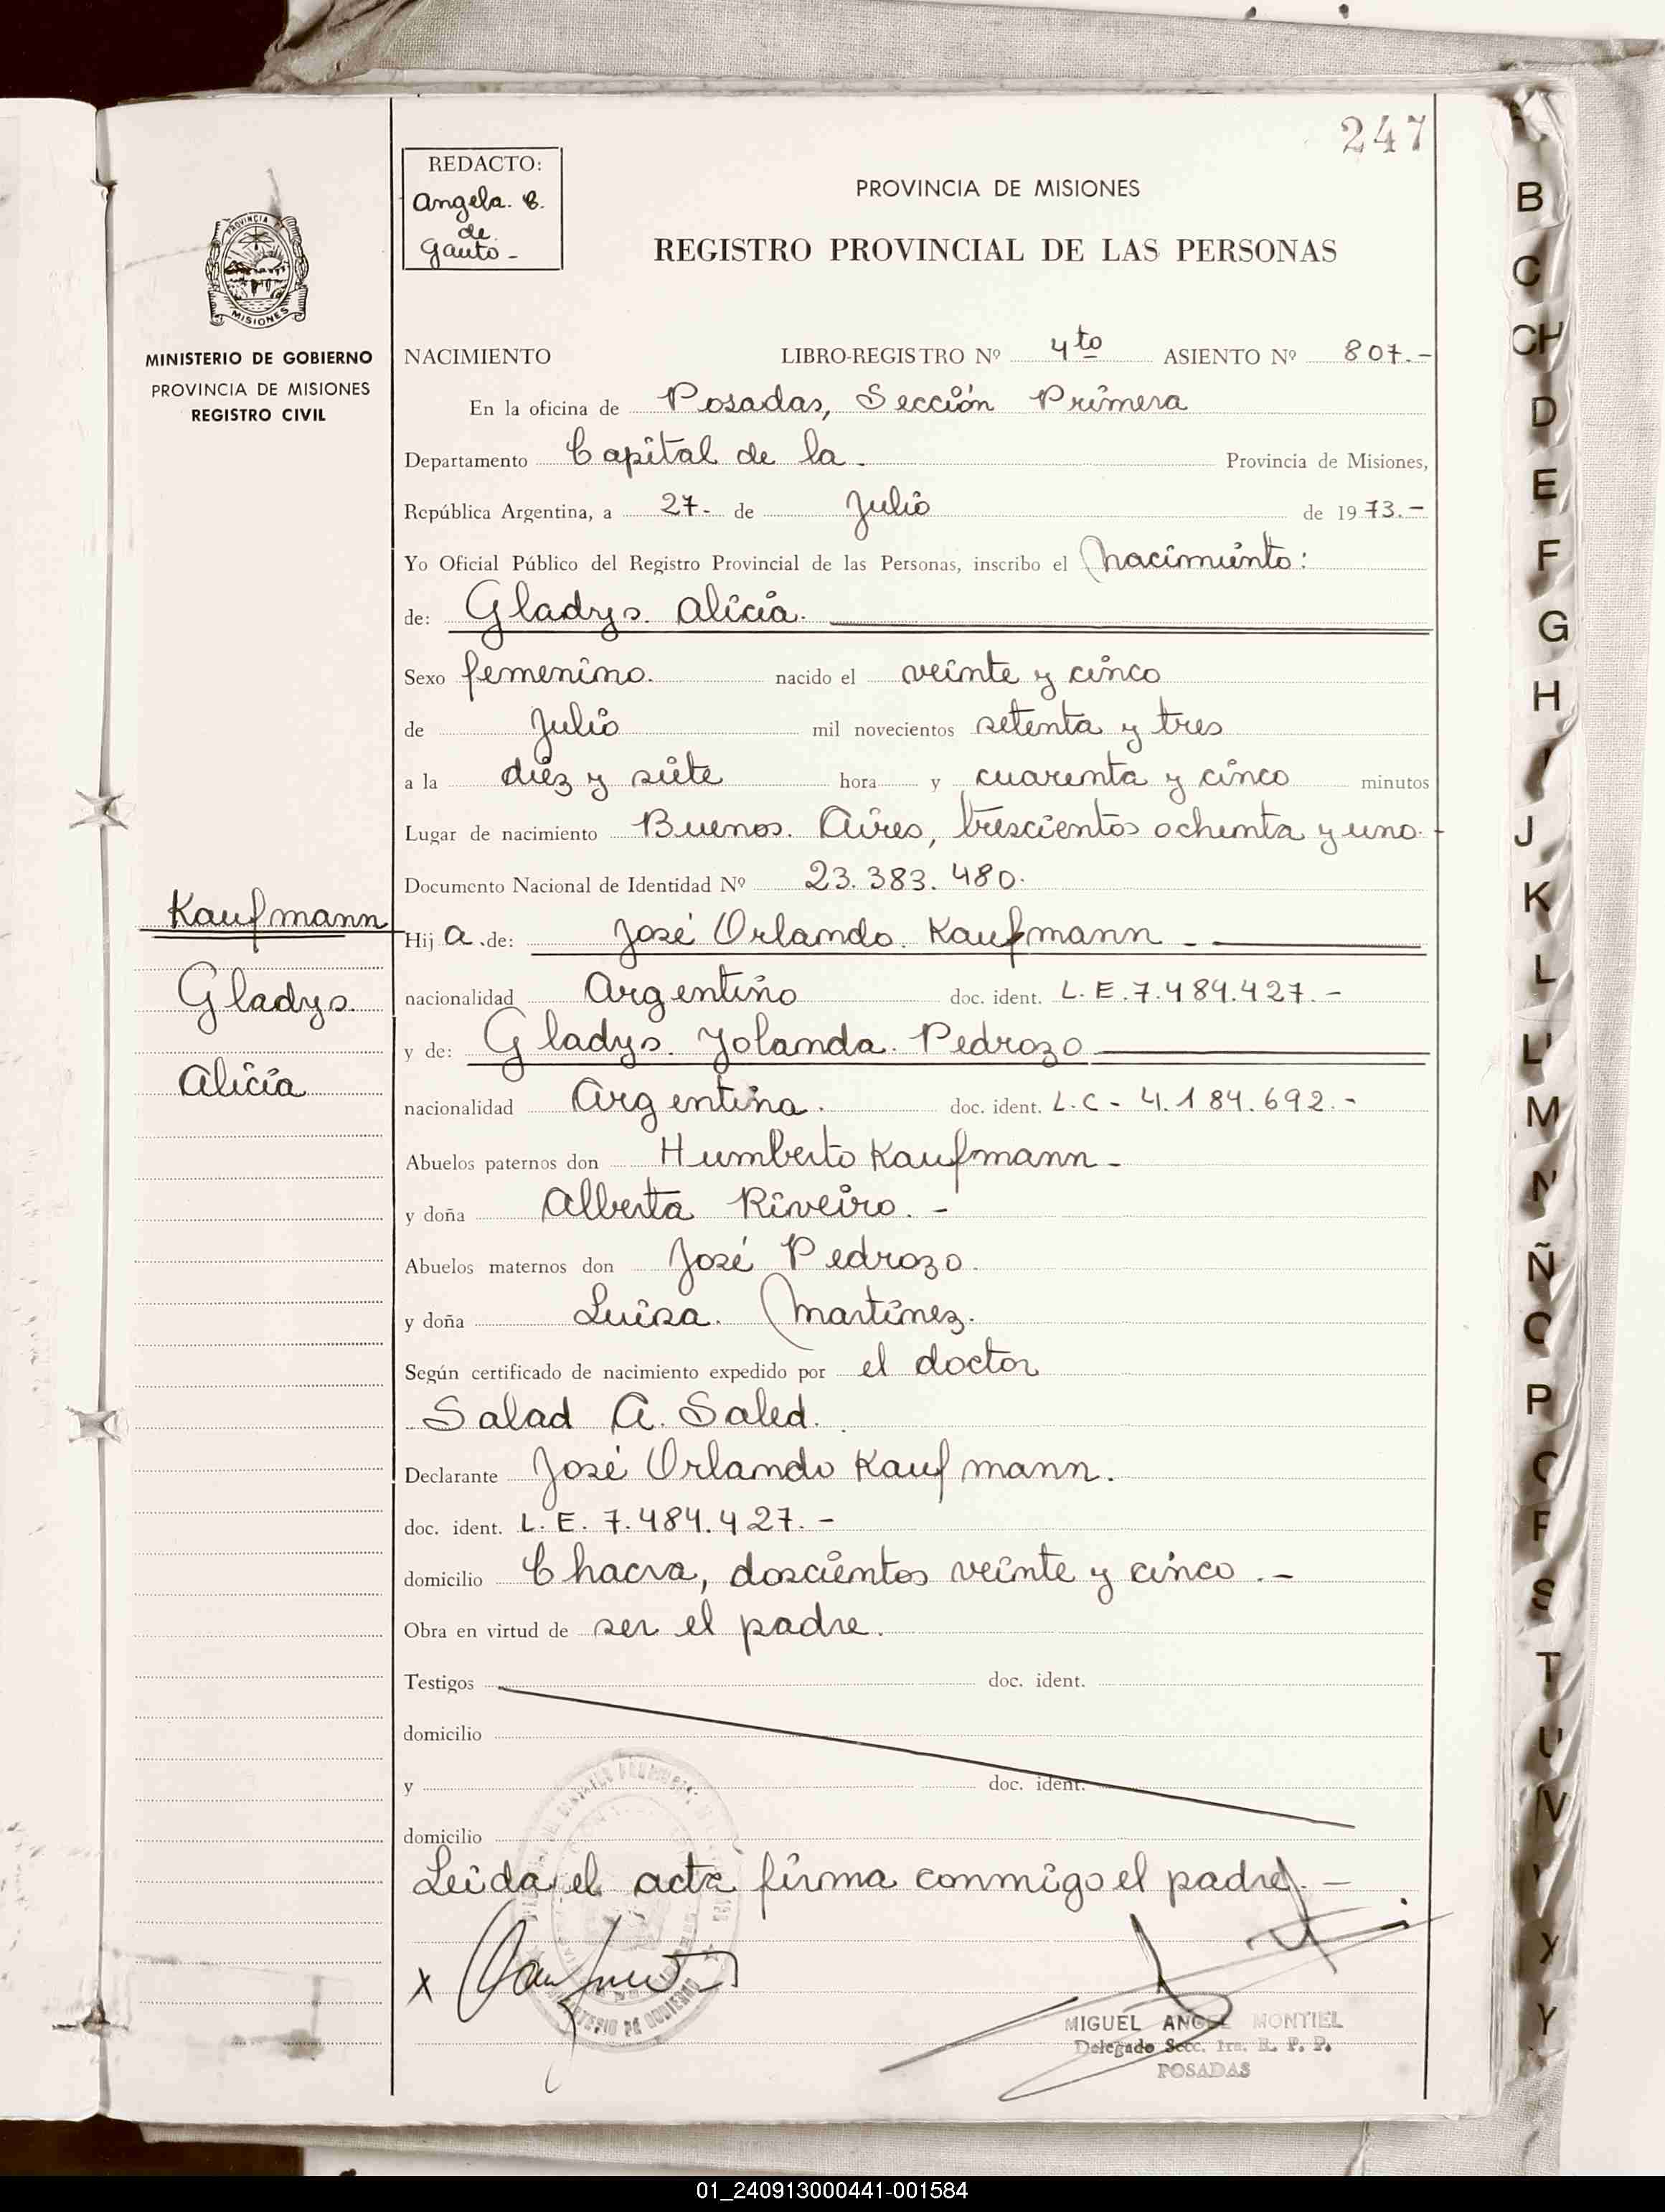 247
REDACTO:
Angela. B.
de
Gauto -
PROVINCIA DE MISIONES
REGISTRO PROVINCIAL DE LAS PERSONAS
PROVINCIA
MISIONES
MINISTERIO DE GOBIERNO
PROVINCIA DE MISIONES
REGISTRO CIVIL
NACIMIENTO LIBRO-REGISTRO Nº 4to ASIENTO Nº 807.-
En la oficina de Posadas, Sección Primera
Departamento Capital de la. Provincia de Misiones,
República Argentina, a 27- de Julio de 1973.-
Yo Oficial Público del Registro Provincial de las Personas, inscribo el Nacimiento:
de: Gladys. Alicia.
Sexo femenino. nacido el veinte y cinco
de Julio mil novecientos setenta y tres
a la diez y siete hora y cuarenta y cinco minutos
Lugar de nacimiento Buenos. Aires, trescientos ochenta y uno.-
Documento Nacional de Identidad Nº 23.383.480.
Kaufmann
Gladys.
Alicia
Hija de: José Orlando. Kaufmann -
nacionalidad Argentino doc. ident. L.E.7.484.427.-
y de: Gladys. Yolanda. Pedrozo
nacionalidad Argentina. doc. ident. L.C- 4.184.692.-
Abuelos paternos don Humberto Kaufmann-
y doña Alberta Riveiro. -
Abuelos maternos don José Pedrozo.
y doña Luisa. Martínez.
Según certificado de nacimiento expedido por el doctor
Salad A. Saled.
Declarante José Orlando Kaufmann.
doc. ident. L.E. 7.484.427.-
domicilio Chacra, doscientos veinte y cinco.-
Obra en virtud de ser el padre.
Testigos doc. ident.
domicilio
y doc. ident.
domicilio
Leida el acta firma conmigo el padre. -
X
MIGUEL ANGEL MONTIEL
Delegado Secc. 1ra. R. P. P.
POSADAS
B
C
CH
D
E
F
G
H
I
J
K
L
LL
M
N
Ñ
O
P
Q
R
S
T
U
V
Y
01_240913000441-001584